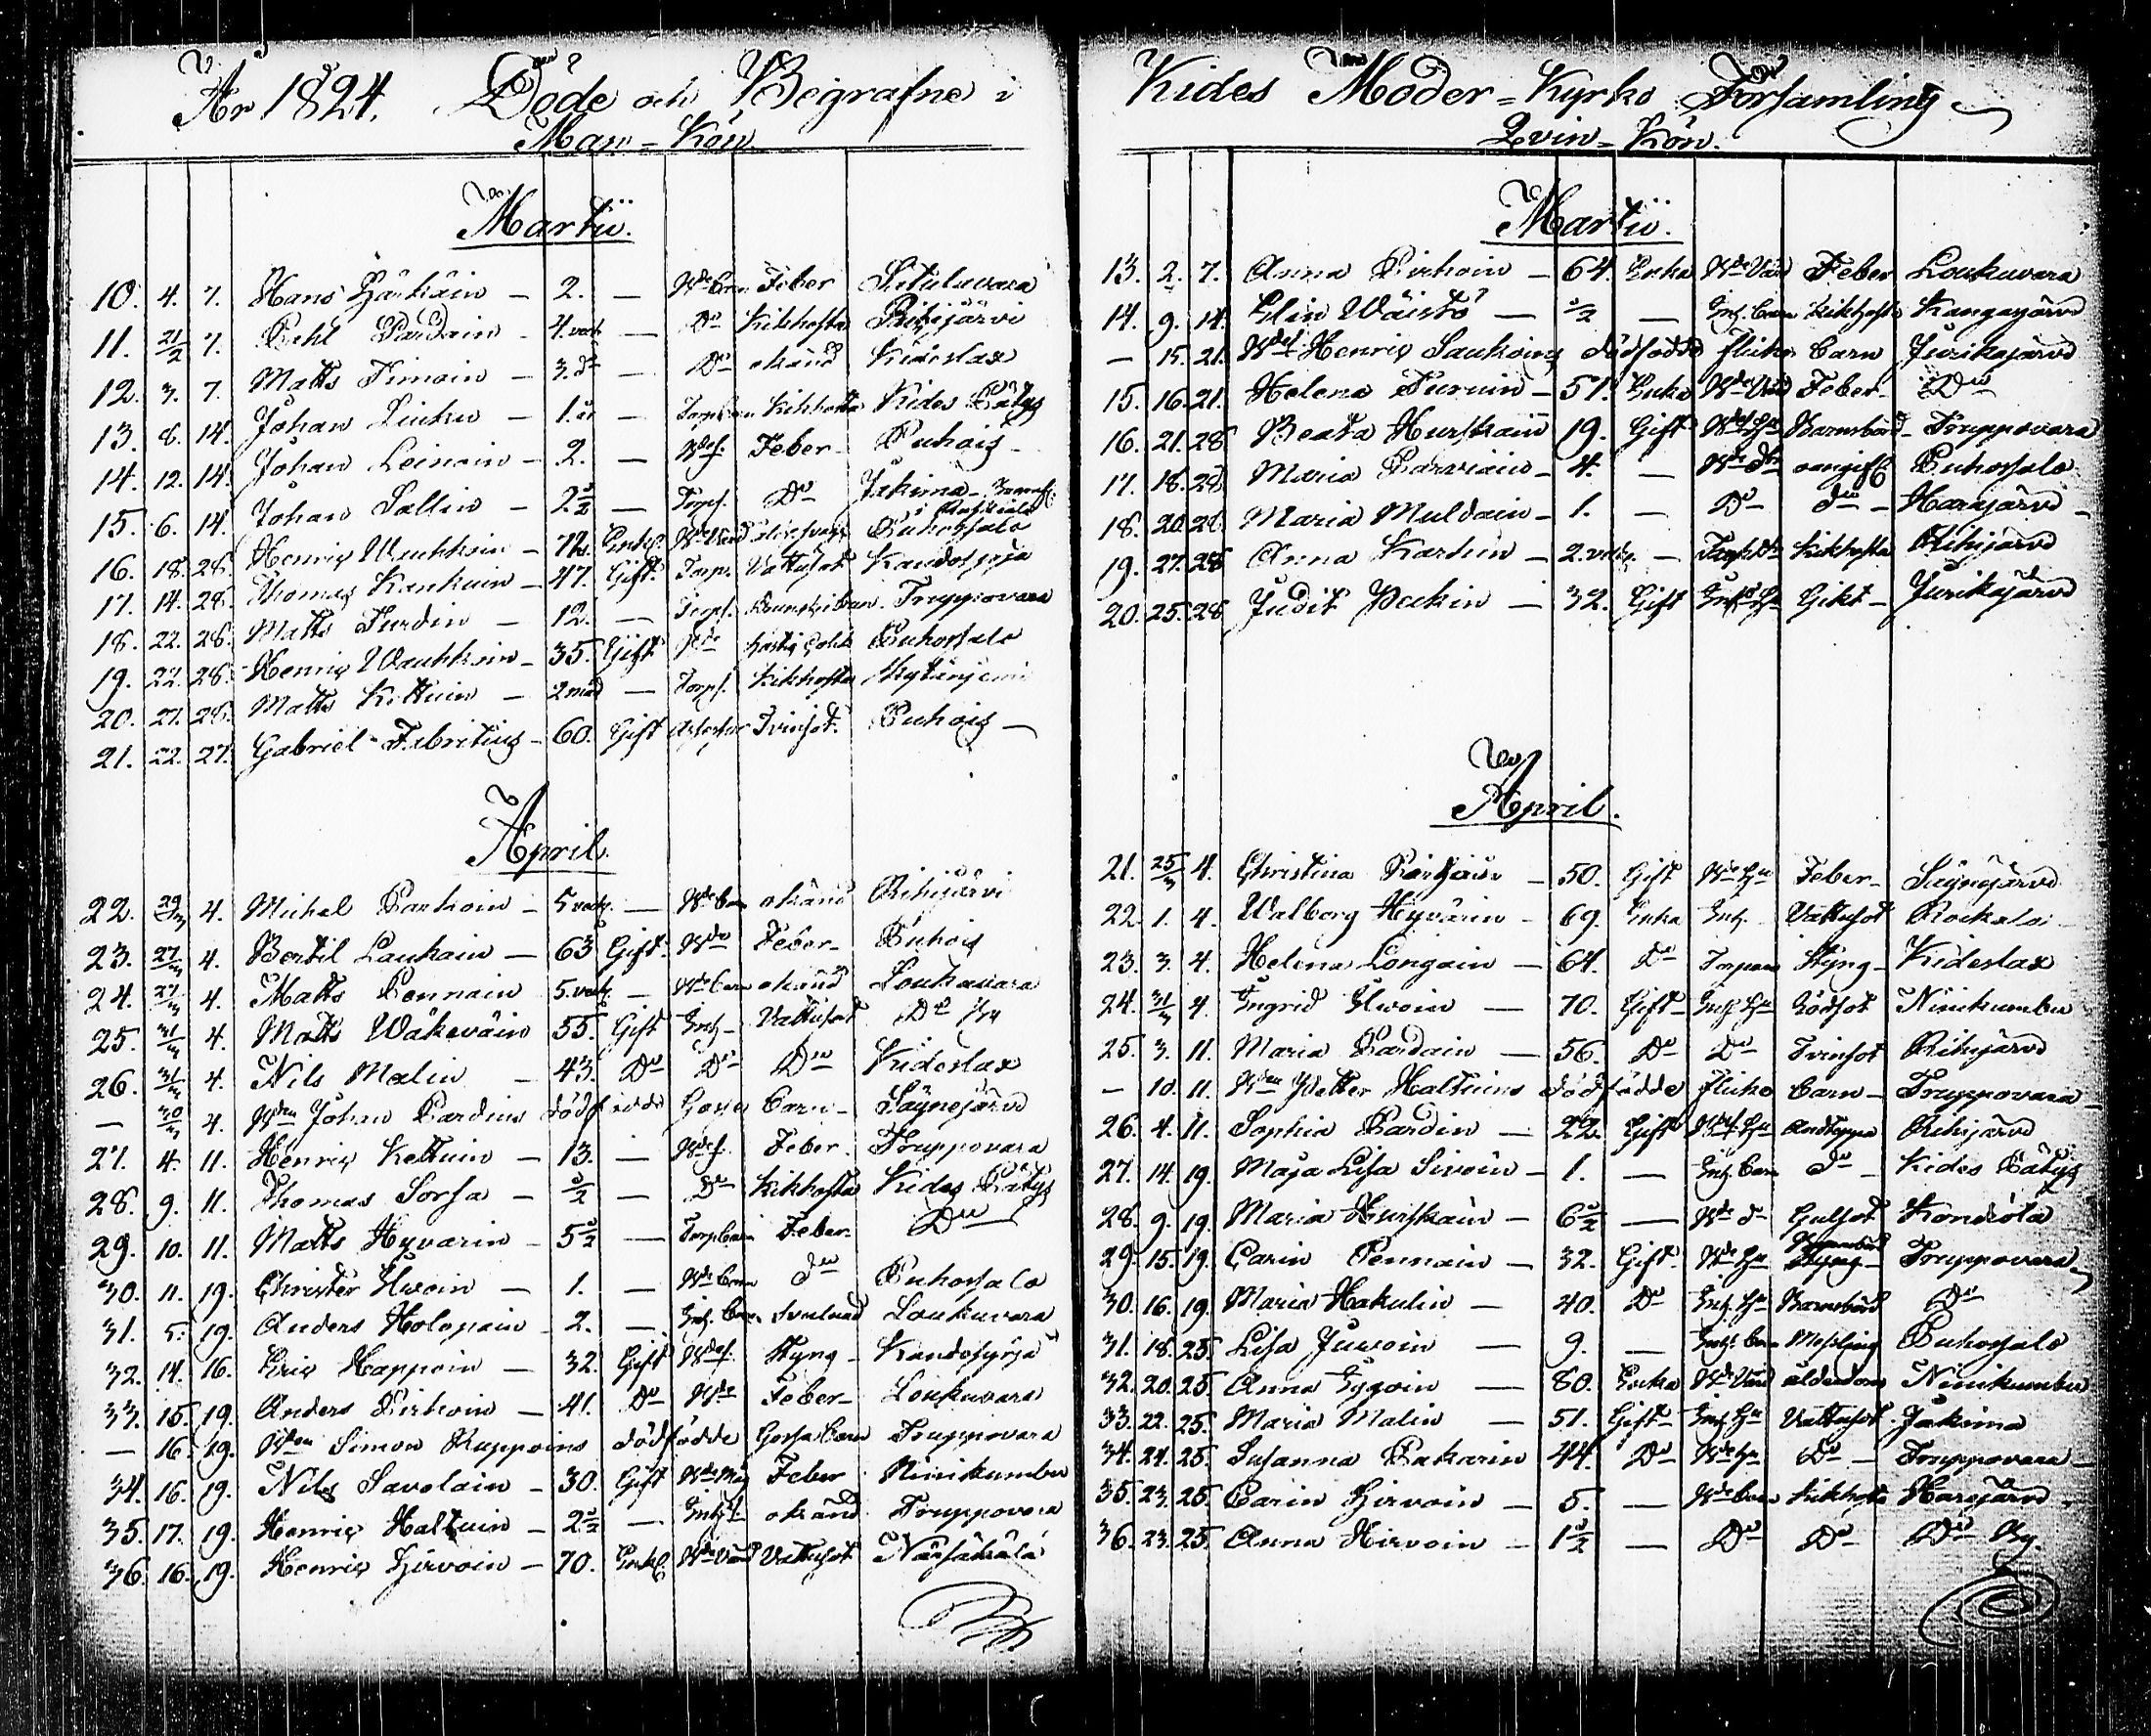 År 1824. Döde och Begrafne i
Man-Kön
Martii.
10. 4. 7. Hans Härkäin — 2. — Wde Barn Feber
11. 21/2 7. Pehl Pardain - 4. veck — Do Kikhosta Riihijärvi
12. 3. 7. Matts Timoin - 3. do — Do okänd Kideslax
13. 8. 14. Johan Liuku - 1. år — Kikhosta Kides Båtys
14. 12. 14. Johan Leinoin - 2. — Wdes. Feber Puhois
15. 6. 14. Johan Sallin - 2 1/2 — Torps. Do Jakima
16. 18. 28. Henric Wauhkoin - Enkl. Puhossalo
17. 14. 28. Thomas Kankuin - 47. Gift. Torp. Vattusot Kandosyrja
18. 22. 28. Matts Turdin - 12. — Torps. Truppovara
19. 22. 28. Henric Wauhkoin - 35. Gift Wde Puhossalo
20. 27. 28. Matts Kettuin - 2 mån — Torps. Kikhosta
21. 22. 27. Gabriel Fabritius - 60. Gift Tvinsot. Puhois
April.
22. 29/3 4. Michel Parkoin - 5 veck. — Wde Barn okänd Riihijärvi
23. 27/3 4. Bertil Laukain — 63 Gift. Wde Feber Puhois
24. 27/3 4. Matts Pennain 5. veck — Wde Barn okänd Loukuvara
25. 31/3 4. Matts Wäkeväin 55. Gift Inh. Vattusot Do
26. 31/3 4. Nils Malin - 43. Do Do Do Kideslax
— 30/3 4. Wden Johan Pardins dödfödde Gosse Barn - Säynejärvi
27. 4. 11. Henric Kettuin - 13. — Wdes. Feber. Truppovara
28. 9. 11. Thomas Sorsa - 1/2 — Do Kikhosta Kides Båtys
29. 10. 11. Matts Hyvärin - 5 1/2 — Torp Barn Feber Do
30. 11. 19. Christer Ilwoin — 1. — Wde Barn do Puhossalo
31. 5. 19. Anders Holopain 2. — Inh. Barn Loukuvara
32. 14. 16. Eric Happoin — 32. Gift Wdes. Styng Kandosyrja
33. 15. 19. Anders Pirhoin — 41. Do Wde Feber Loukuvara
— 16. 19. Wden Simon Ruppoins dödfödde Gosse Barn Truppovara
34. 16. 19. Nils Savolain - 30. Gift Wde Måg Feber Niinikumbu
35. 17. 19. Henric Haltuin - 2 1/2 — okänd Truppovara
36. 16. 19. Henric Hirvoin - 70. Enkl. Vattusot Närsäkälä
Kides Moder-Kyrko Församling
Qvin-Kön.
Martii.
13. 2. 7. Anna Pirhoin — 64. Enka Feber Loukuvara
14. 9. 14. Elin Wäistö — 1/2 — Inh. Barn Kikhosta Kangasjärvi
— 15. 21. Wdes. Henric Saukoins dödfödde flicko barn Juurikajärvi
15. 16. 21. Helena Turuin - 57. Enka Feber Do
16. 21. 28 Beata Hurskain 19. Gift Barnsbörd Truppovara
17. 18. 28 Maria Parviain - 4. — oangift Puhossalo
18. 20. 28 Maria Muldain - 1. — Do do - Harajärvi
19. 27. 28 Anna Karhuin - 2. veck. — Kikhosta Riihijärvi
20. 25. 28 Judit Peckin — 32. Gift Gikt Juurikajärvi
April.
21. 25/3 4. Christina — 50. Gift Feber Säynejärvi
22. 1. 4. Walborg Hyvärin - 69. Enka Inh. Vattusot
23. 3. 4. Helena Longain — 64. Do Styng Kideslax
24. 31/3 4. Ingrid Ilwoin — 70. Gift Niinikumbu
25. 3. 11. Maria Pardain — 56. Do Do Tvinsot Riihijärvi
— 10. 11. Wden Petter Haltuins dödfödde flicko barn Truppovara
26. 4. 11. Sophia Pardin — 22. Gift andtäppa Riihijärvi
27. 14. 19. Maja Lisa Sivoin - 1. — Inh. Barn do Kides Båtys
28. 9. 19. Maria Hurskain — 6 1/2 — Gulsot
29. 15. 19. Carin Pennain — 32. Gift. Truppovara
30. 16. 19. Maria Hakulin — 40. Do Barnsbörd Do
31. 18. 25. Lisa Juwoin — 9. — Inh. Barn Messling Puhossalo
32. 20. 25. Anna — 80. Enka ålderdom Niinikumbu
33. 22. 25. Maria Malin — 51. Gift Vattusot Jakima
34. 24. 25. Susanna Pakarin 44. Do Do Truppovara
35. 23. 25. Carin Hirvoin — 5. — Wde Barn Kikhosta Harajärvi
36. 23. 25. Anna Hirvoin — 1 1/2 — Do Do Do